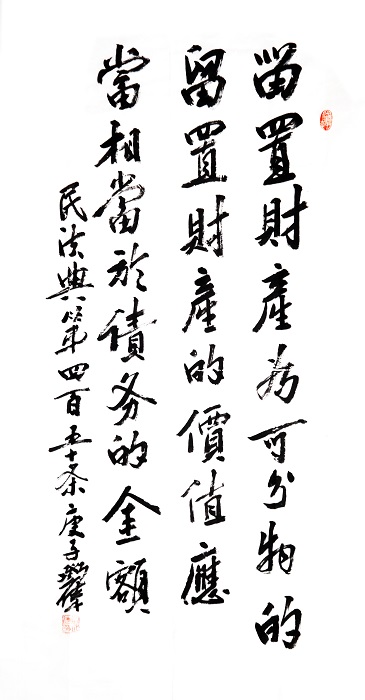 留置財產为可分物的
留置財產的價值應
當相當於債务的金額
民法典第四百五十条 庚子